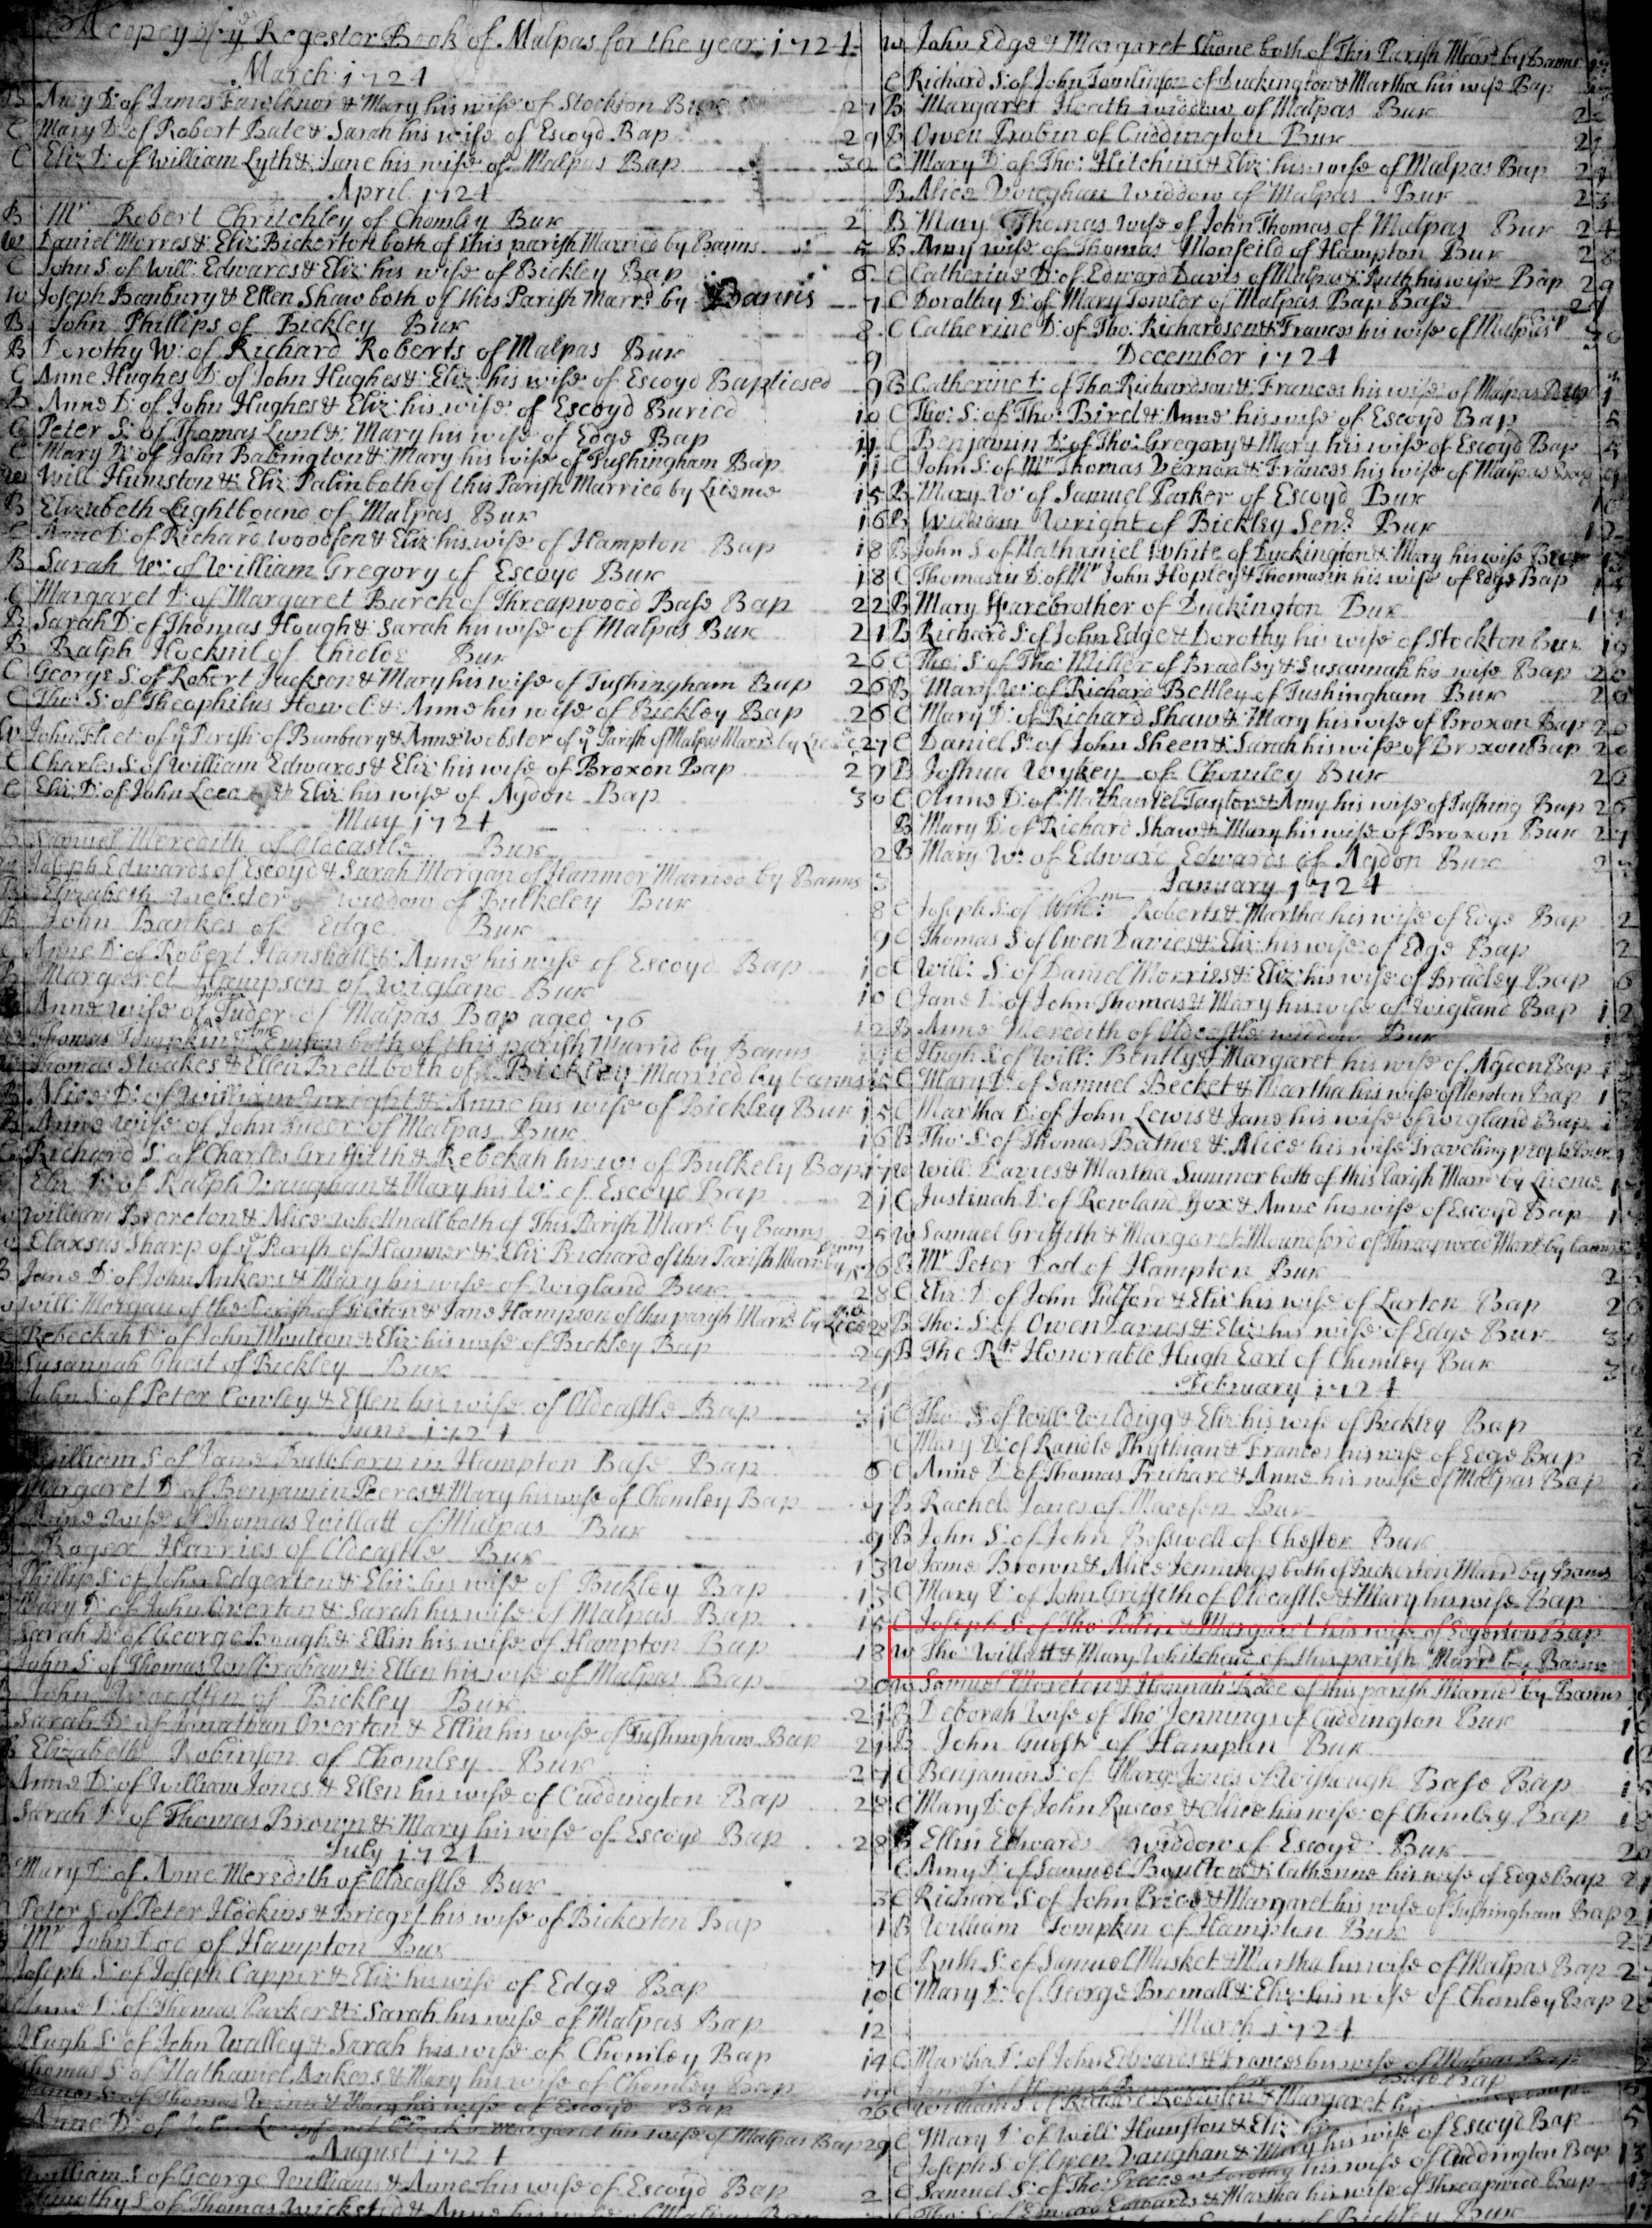 A copey of ye Regester Book of Malpas for the year 1724
March 1724
B Amy D: of James Fawlknor & Mary his wife of Stockton Bur 27
C Mary D: of Robert Bate & Sarah his wife of Escoyd Bap 29
C Eliz D: of William Lyth & Jane his wife of Malpas Bap 30
April 1724
B Mr Robert Chritchley of Chomley Bur 2
W Daniel Morres & Eliz: Bickerton both of this parish Married by Banns 5
C John S: of Will: Edwards & Eliz his wife of Bickley Bap 6
W Joseph Banbury & Ellen Shaw both of this Parish Marrd by Banns 7
B John Phillips of Bickley Bur 8
B Dorothy W: of Richard Roberts of Malpas Bur 9
C Anne Hughes D: of John Hughes & Eliz: his wife of Escoyd Baptiesed 9
B Anne D: of John Hughes & Eliz: his wife of Escoyd Buried 10
C Peter S: of Thomas Lunt & Mary his wife of Edge Bap 11
C Mary D: of John Babington & Mary his wife of Tushingham Bap 11
W Will Humston & Eliz Palin both of this Parish Married by Licence 15
B Elizabeth Lightbound of Malpas Bur 16
C Anne D: of Richard Woodfen & Eliz: his wife of Hampton Bap 18
B Sarah W: of William Gregory of Escoyd Bur 18
C Margaret D: of Margaret Burch of Threapwood Base Bap 22
B Sarah D: of Thomas Hough & Sarah his wife of Malpas Bur 21
B Ralph Hocknil of Bur 26
C George S: of Robert Jackson & Mary his wife of Tushingham Bap 26
C Tho: S: of Theophilus Howel & Anne his wife of Bickley Bap 26
W John Fleet of ye Parish of Bunbury & Anne Webster of ye Parish of Malpas Marrd by 27
C Charles S: of William Edwards & Eliz his wife of Broxon Bap 29
C Eliz: D: of John & Eliz his wife of Agdon Bap 30
May 1724
B Samuel Meredith of Oldcastle Bur 2
Joseph Edwards of Escoyd & Sarah Morgan of Hanmor Married by Banns 3
B Elizabeth Webster widdow of Bulkeley Bur 8
B John Bankes of Edge Bur 9
C Anne D: of Robert Hanshall & Anne his wife of Escoyd Bap 10
B Margaret Hampson of Wigland Bur 10
Anne wife of John Tudor of Malpas Bap aged 76 12
Thomas Tompkin & Ann both of this parish Married by Banns
Thomas Stoakes & Ellen Brett both of Bickley Married by banns
B Alice D: of William Wright & Anne his wife of Bickley Bur 15
B Anne wife of John Tudor of Malpas Bur 16
C Richard S: of Charles Griffith & Rebekah his w: of Bulkely Bap 17
C Eliz D: of Ralph Vaughan & Mary his W: of Escoyd Bap 21
W William Brereton & Alice both of This Parish Marrd by Banns 25
W Sharp of ye Parish of Hanmer & Eliz Prichard of this Parish Marrd by Banns 26
B Jane D: of John Ankers & Mary his wife of Wigland Bur 28
W Will: Morgan of the Parish of & Jane Hampson of this parish Marrd by 28
C Rebeckah D: of John Moulton & Eliz: his wife of Bickley Bap 29
B Susannah Guest of Bickley Bur 29
John S: of Peter Cowley & Ellen his wife of Oldcastle Bap 31
June 1724
William S: of Jane in Hampton Base Bap 6
Margaret D: of Benjamin Peeres & Mary his wife of Chomley Bap 7
Anne wife of Thomas Willatt of Malpas Bur 9
Roger Harries of Oldcastle Bur 13
Phillip S: of John Edgerton & Eliz: his wife of Bickley Bap 13
Mary D: of John Overton & Sarah his wife of Malpas Bap 15
Sarah D: of George Bough & Ellin his wife of Hampton Bap 18
John S: of Thomas Wilbraham & Ellen his wife of Malpas Bap 20
John Woodfen of Bickley Bur 21
Sarah D: of Jonathan Overton & Ellin his wife of Tushingham Bap 21
B Elizabeth Robinson of Chomley Bur 27
Anne D: of William Jones & Ellen his wife of Cuddington Bap 28
Sarah D: of Thomas Brown & Mary his wife of Escoyd Bap 28
July 1724
Mary D: of Anne Meredith of Oldcastle Bur 3
Peter S: of Peter Hodkins & Bridget his wife of Bickerton Bap 1
Mr John Dod of Hampton Bur 7
Joseph S: of Joseph Capper & Eliz his wife of Edge Bap 10
Anne D: of Thomas Parker & Sarah his wife of Malpas Bap 12
Hugh S: of John Walley & Sarah his wife of Chomley Bap 14
Thomas S: of Nathaniel Ankers & Mary his wife of Chomley Bap
S: of Thomas & Mary his wife of Escoyd Bap 26
Anne D: of John & Margaret his wife of Malpas Bap 29
August 1724
William S: of George Williams & Anne his wife of Escoyd Bap 2
Timothy S: of Thomas Wicksted & Anne his wife of Malpas Bap
W John Edge & Margaret Shone both of This Parish Marrd by Banns
C Richard S: of John Tomlinson of Duckington & Martha his wife Bap
B Margaret Heath widdow of Malpas Bur
B Owen Probin of Cuddington Bur
C Mary D: of Tho: Hitchin & Eliz: his wife of Malpas Bap
B Alice Voughan Widdow of Malpas Bur 23
B Mary Thomas wife of John Thomas of Malpas Bur 24
B Amy wife of Thomas Monfeild of Hampton Bur 28
C Catherine D: of Edward Davis of Malpas & Ruth his wife Bap 29
C Dorothy D: of Mary Fowler of Malpas Bap Base 29
C Catherine D: of Tho: Richardson & Frances his wife of Malpas Bap 30
December 1724
B Catherine D: of Tho: Richardson & Frances his wife of Malpas Bur 1
C Tho: S: of Tho: Birch & Anne his wife of Escoyd Bap 5
C Benjamin D: of Tho: Gregory & Mary his wife of Escoyd Bap 5
C John S: of Mr Thomas Vernon & Frances his wife of Malpas Bap
B Mary W: of Samuel Parker of Escoyd Bur 10
B William Wright of Bickley Senr Bur 12
B John S: of Nathaniel White of Duckington & Mary his wife Bur
C Thomasin D: of Mr John Hopley & Thomasin his wife of Edge Bap
B Mary Harebrother of Duckington Bur
B Richard S: of John Edge & Dorothy his wife of Stockton Bur 19
C Tho: S: of Tho: Miller of Bradley & Susannah his wife Bap 20
B Mary W: of Richard Bettley of Tushingham Bur 20
C Mary D: of Richard Shaw & Mary his wife of Broxon Bap 20
C Daniel S: of John Sheen & Sarah his wife of Broxon Bap 20
B Joshua Wykey of Chomley Bur 26
C Anne D: of Nathaniel Taylor & Amy his wife of Tushing Bap 26
B Mary D: of Richard Shaw & Mary his wife of Broxon Bur 27
B Mary W: of Edward Edwards of Agdon Bur
January 1724
C Joseph S: of Willm Roberts & Martha his wife of Edge Bap 2
C Thomas S: of Owen Davies & Eliz: his wife of Edge Bap 2
C Will: S: of Daniel Morries & Eliz: his wife of Bradley Bap 6
C Jane D: of John Thomas & Mary his wife of Wigland Bap 12
B Anne Meredith of Oldcastle widdow Bur
C Hugh S: of Will: Bently & Margaret his wife of Agdon Bap
C Mary D: of Samuel Becket & Martha his wife of Newton Bap
C Martha D: of John Lewis & Jane his wife of Wigland Bap
B Tho: S: of Thomas Bathoe & Alice his wife Traveling people Bur
W Will: Davies & Martha Sumner both of this Parish Marrd by Licence
C Justinah D: of Rowland Yox & Anne his wife of Escoyd Bap
W Samuel Griffith & Margaret Mounsford of Threapwood Marrd by banns
B Mr Peter Dod of Hampton Bur
C Eliz: D: of John Pulford & Eliz his wife of Larton Bap
B Tho: S: of Owen Davies & Eliz: his wife of Edge Bur
B The Rt Honorable Hugh Earl of Chomley Bur
February 1724
C Tho: S: of Will: Wildigg & Eliz: his wife of Bickley Bap
C Mary D: of Randle Phythian & Frances his wife of Edge Bap
C Anne D: of Thomas Prichard & Anne his wife of Malpas Bap
B Rachel Jones of Macefen Bur
B John S: of John Bosswell of Chester Bur
W James Brown & Alice Jennings both of Bickerton Marrd by Banns
C Mary D: of John Griffith of Oldcastle & Mary his wife Bap
C Joseph S: of Tho: Palin & Margaret his wife of Edgerton Bap
W Tho: Willatt & Mary Whitehead of this parish Marrd by Banns
W Samuel Moreton & Hannah of this parish Married by Banns
B Deborah wife of Tho: Jennings of Cuddington Bur
B John Guest of Hampton Bur
C Benjamin S: of Mary Jones of Wichaugh Base Bap
C Mary D: of John Ruscoe & Alice his wife of Chomley Bap
B Ellin Edwards widdow of Escoyd Bur
C Amy D: of Samuel Boulton & Catherine his wife of Edge Bap 21
C Richard S: of John Price & Margaret his wife of Tushingham Bap 21
B William Tompkin of Hampton Bur 22
C Ruth S: of Samuel Musket & Martha his wife of Malpas Bap
C Mary D: of George Bromall & Eliz: his wife of Chomley Bap
March 1724
C Martha D: of John Edwards & Frances his wife of Malpas Bap
Base Bap
C William S: of Richard Robinson & Margaret his
C Mary D: of Will: Humston & Eliz: his wife of Escoyd Bap 5
C Joseph S: of Owen Vaughan & Mary his wife of Cuddington Bap 13
C Samuel S: of Tho: & Dorothy his wife of Threapwood Bap
C Tho: S: of Edward Edwards & Martha his wife
of Bickley Bur